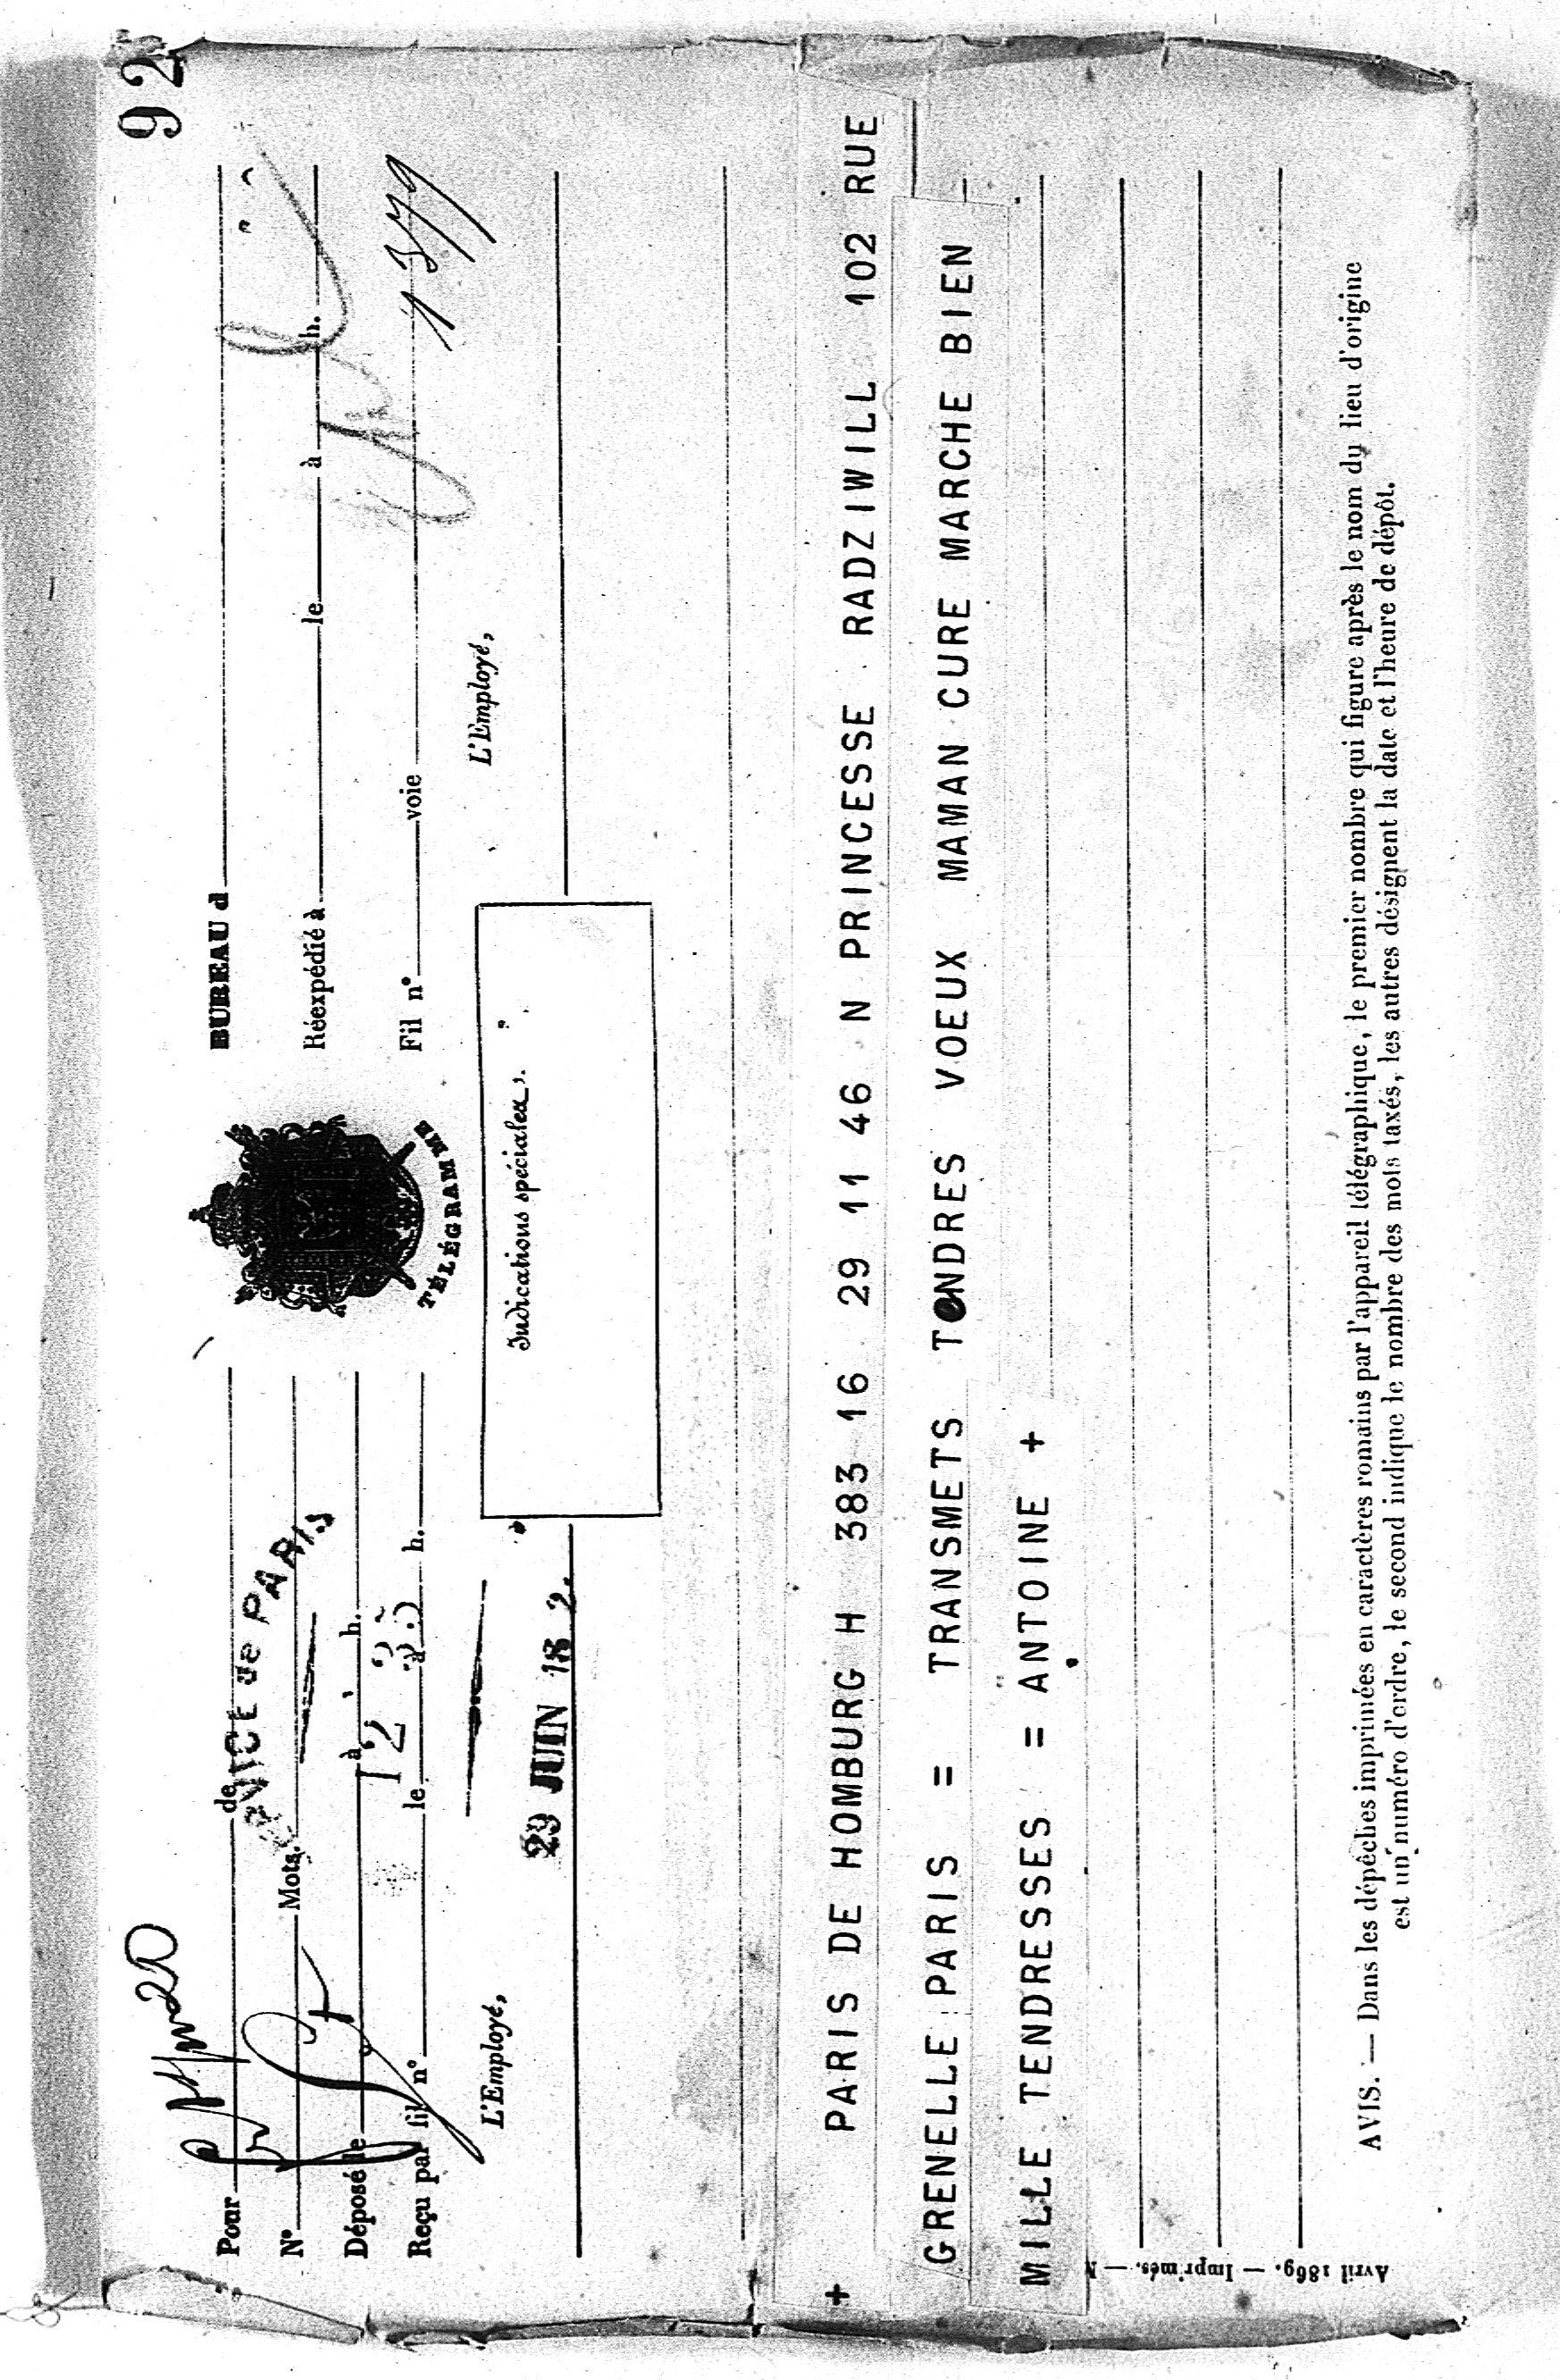 92
Pour de
N° Mots.
Déposé le à h.
12 35
Reçu par fil n° le à h.
L'Employé,
de PARIS
29 JUIN 18 2.
TÉLÉGRAMME
BUREAU d
Réexpédié à le à h.
Fil n° voie
1379
L'Employé,
Indications spéciales.
+ PARIS DE HOMBURG H 383 16 29 11 46 N PRINCESSE RADZIWILL 102 RUE
GRENELLE PARIS = TRANSMETS TONDRES VOEUX MAMAN CURE MARCHE BIEN
MILLE TENDRESSES = ANTOINE +
AVIS. — Dans les dépêches imprimées en caractères romains par l'appareil télégraphique, le premier nombre qui figure après le nom du lieu d'origine
est un numéro d'ordre, le second indique le nombre des mots taxés, les autres désignent la date et l'heure de dépôt.
Avril 1869. — Imprimés. — N